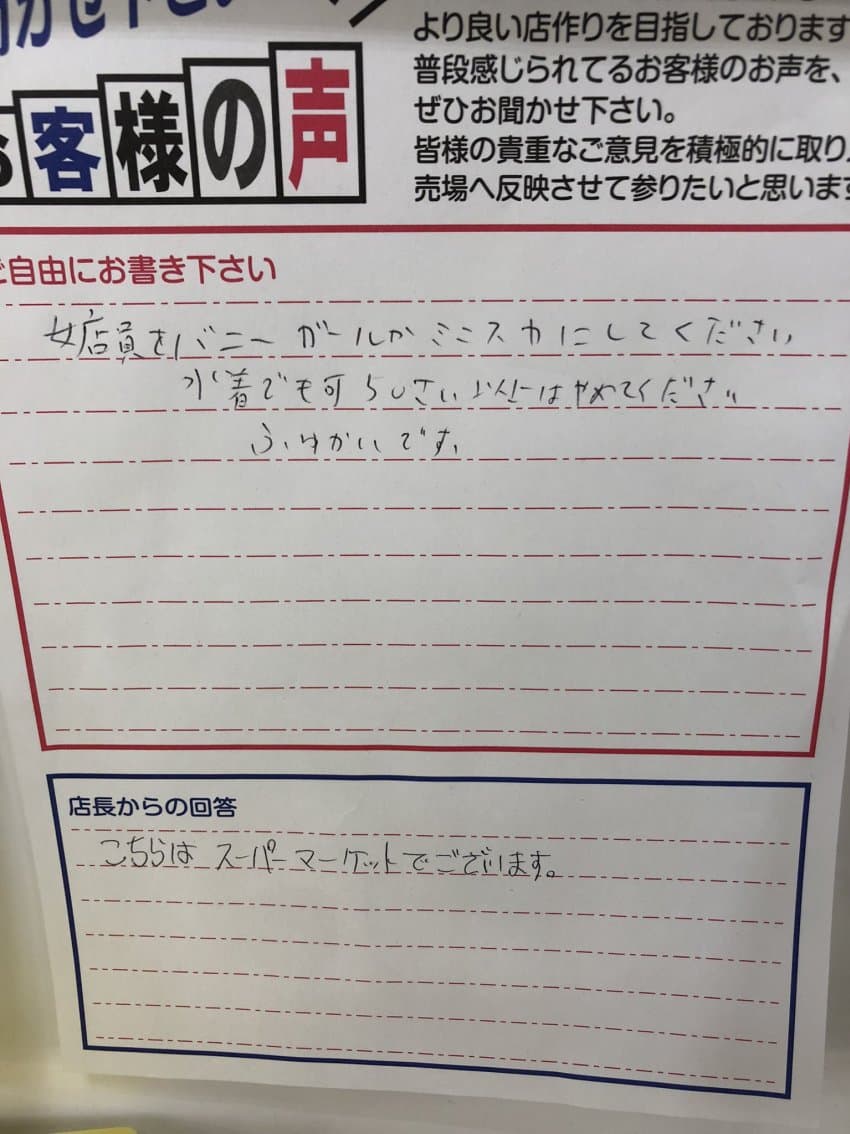 聞かせ下さい
お客様の声
より良い店作りを目指しております
普段感じられてるお客様のお声を、
ぜひお聞かせ下さい。
皆様の貴重なご意見を積極的に取り
売場へ反映させて参りたいと思います
ご自由にお書き下さい
女店員をバニーガールかミニスカにしてください
水着でも可 ちいさい以外はやめてください
ふゆかいです。
店長からの回答
こちらは スーパーマーケットでございます。